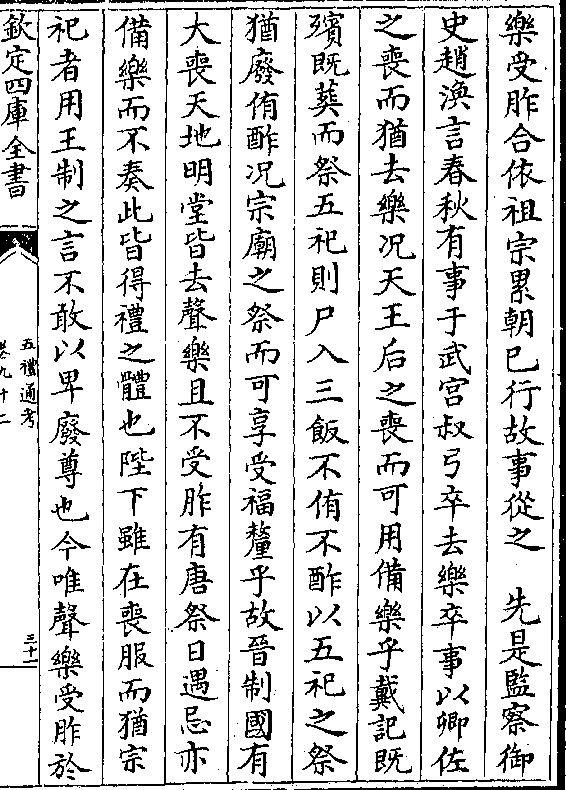 樂受胙合依祖宗累朝已行故事從之　先是監察御
史趙渙言春秋有事于武宮叔弓卒去樂卒事以卿佐
之喪而猶去樂况天王后之喪而可用備樂乎戴記既
殯既葬而祭五祀則尸入三飯不侑不酢以五祀之祭
猶廢侑酢况宗廟之祭而可享受福釐乎故晉制國有
大喪天地明堂皆去聲樂且不受胙有唐祭日遇忌亦
備樂而不奏此皆得禮之體也陛下雖在喪服而猶宗
祀者用王制之言不敢以卑廢尊也今唯聲樂受胙於
欽定四庫全書
五禮通考
卷九十二
三十一